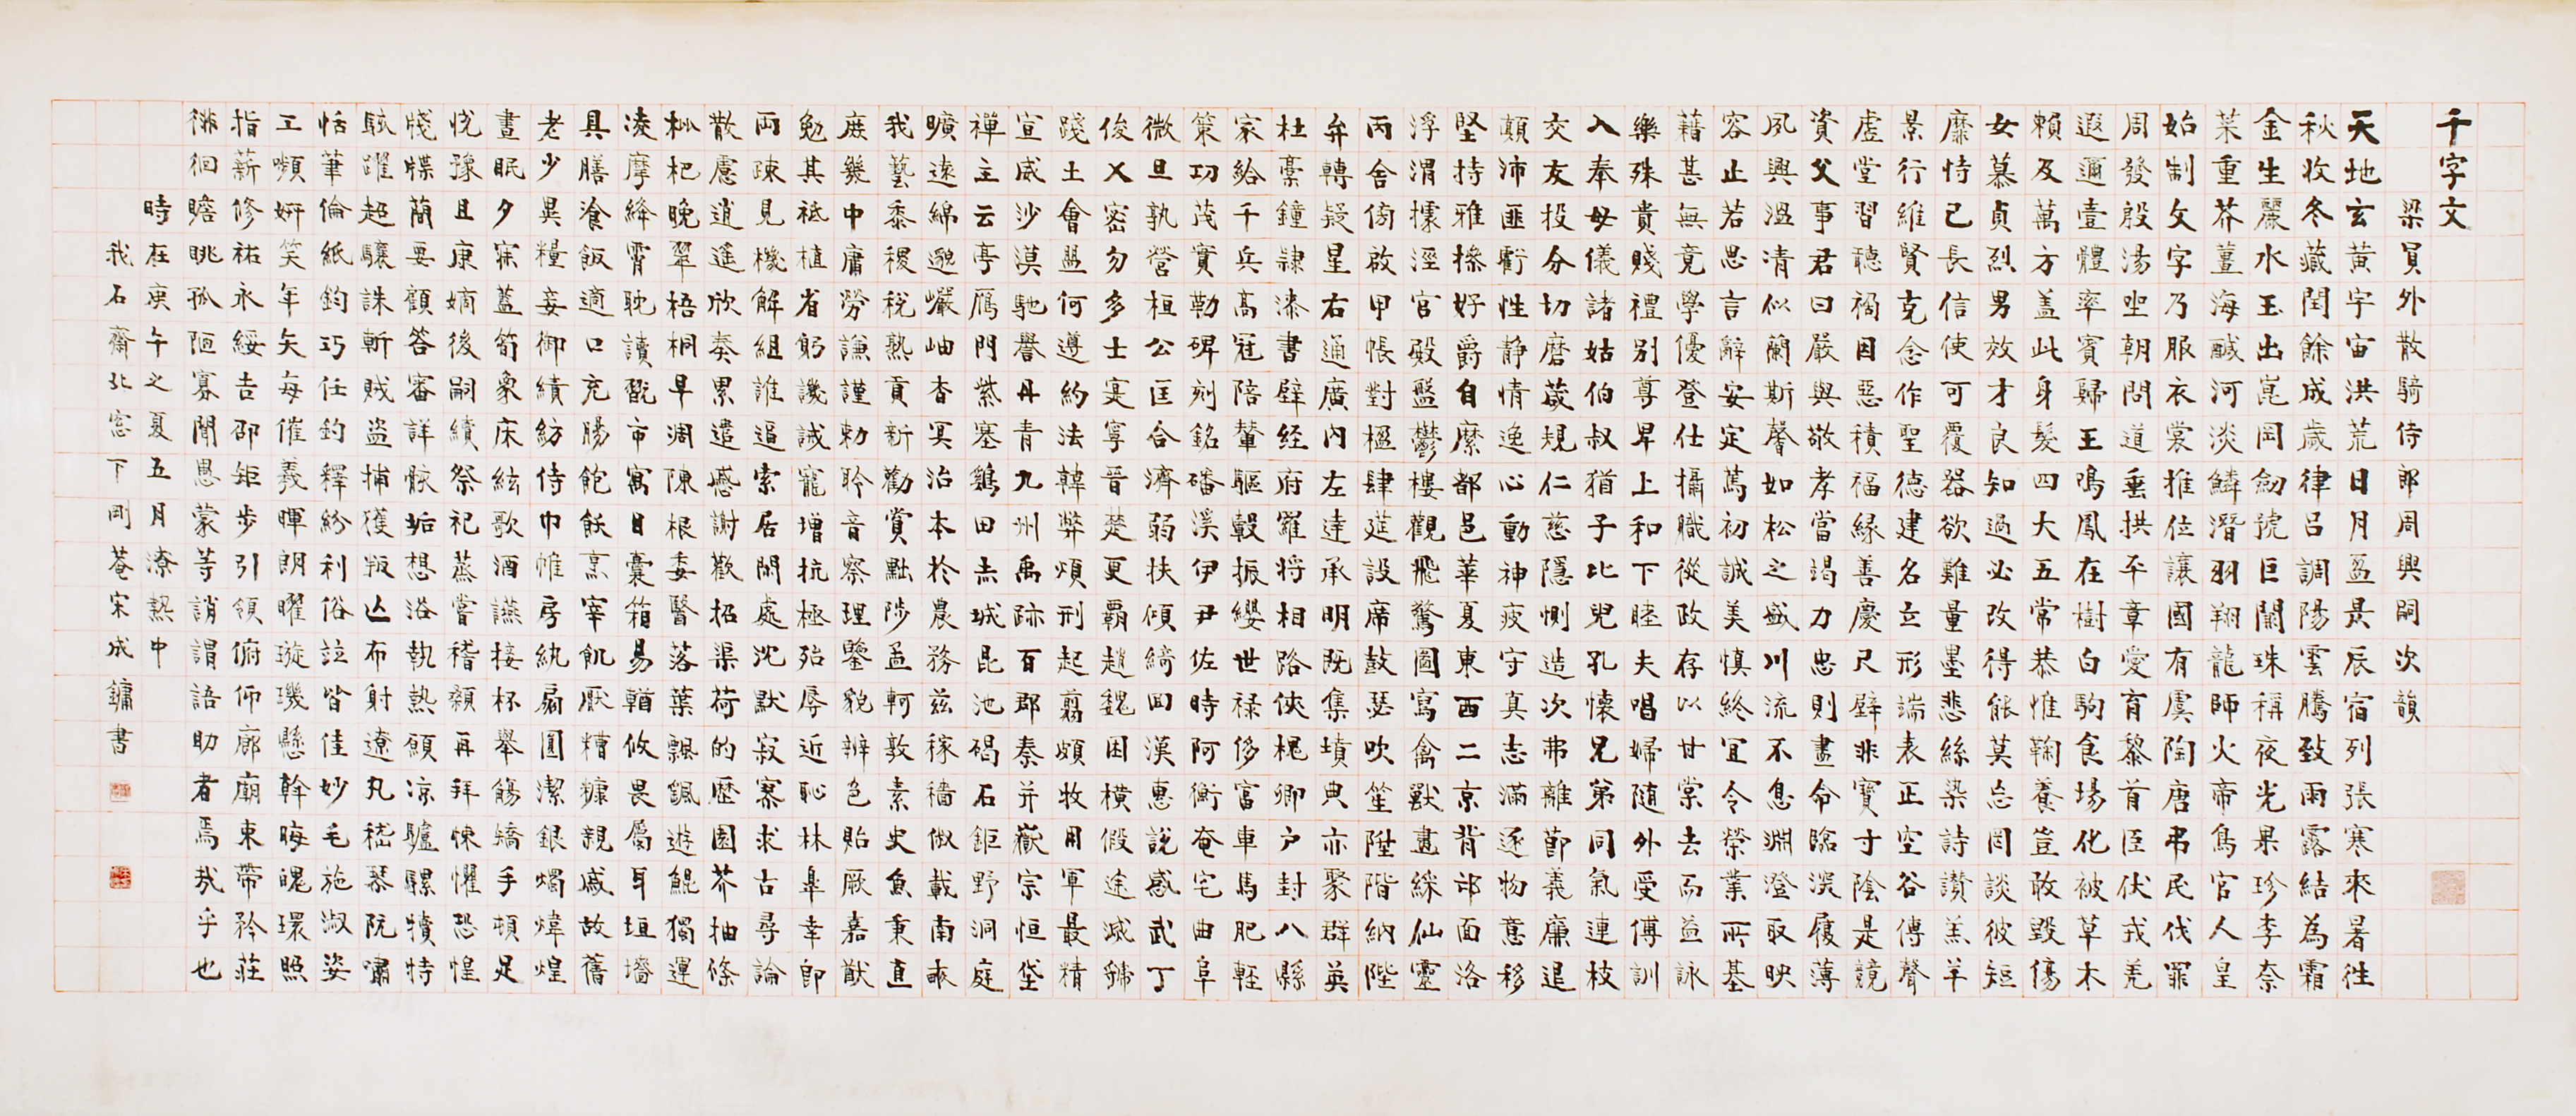 千字文
梁員外散騎侍郎周興嗣次韻
天地玄黃宇宙洪荒日月盈昃辰宿列張寒來暑往
秋收冬藏閏餘成歲律呂調陽雲騰致雨露結為霜
金生麗水玉出崑岡劒號巨闕珠稱夜光果珍李柰
菜重芥薑海鹹河淡鱗潛羽翔龍師火帝鳥官人皇
始制文字乃服衣裳推位讓國有虞陶唐弔民伐罪
周發殷湯坐朝問道垂拱平章愛育黎首臣伏戎羌
遐邇壹體率賓歸王鳴鳳在樹白駒食場化被草木
賴及萬方盖此身髮四大五常恭惟鞠養豈敢毀傷
女慕貞烈男效才良知過必改得能莫忘罔談彼短
靡恃己長信使可覆器欲難量墨悲絲染詩讚羔羊
景行維賢克念作聖德建名立形端表正空谷傳聲
虛堂習聽禍因惡積福緣善慶尺璧非寶寸陰是競
資父事君曰嚴與敬孝當竭力忠則盡命臨深履薄
夙興溫凊似蘭斯馨如松之盛川流不息淵澄取映
容止若思言辭安定篤初誠美慎終宜令榮業所基
藉甚無竟學優登仕攝職從政存以甘棠去而益詠
樂殊貴賤禮別尊卑上和下睦夫唱婦随外受傅訓
入奉母儀諸姑伯叔猶子比兒孔懷兄弟同氣連枝
交友投分切磨箴規仁慈隱惻造次弗離節義廉退
顛沛匪虧性静情逸心動神疲守真志滿逐物意移
堅持雅操好爵自縻都邑華夏東西二京背邙面洛
浮渭據涇宮殿盤鬱樓觀飛驚圖寫禽獸畫綵仙靈
丙舍傍啟甲帳對楹肆筵設席鼓瑟吹笙陞階納陛
弁轉疑星右通廣內左達承明既集墳典亦聚群英
杜稾鐘隸漆書壁經府羅將相路俠槐卿户封八縣
家給千兵高冠陪輦驅轂振纓世祿侈富車馬肥輕
策功茂實勒碑刻銘磻溪伊尹佐時阿衡奄宅曲阜
微旦孰營桓公匡合濟弱扶傾綺回漢惠說感武丁
俊乂密勿多士寔寧晉楚更霸趙魏困橫假途滅虢
踐土會盟何遵約法韓弊煩刑起翦頗牧用軍最精
宣威沙漠馳譽丹青九州禹跡百郡秦并嶽宗恒岱
禪主云亭雁門紫塞鷄田赤城昆池碣石鉅野洞庭
曠遠綿邈巖岫杳冥治本於農務茲稼穡俶載南畝
我藝黍稷稅熟貢新勸賞黜陟孟軻敦素史魚秉直
庶幾中庸勞謙謹勅聆音察理鑒貌辨色貽厥嘉猷
勉其祗植省躬譏誡寵增抗極殆辱近恥林皋幸即
兩疎見機解組誰逼索居閒處沈默寂寥求古尋論
散慮逍遙欣奏累遣慼謝歡招渠荷的歷園莽抽條
枇杷晚翠梧桐早凋陳根委翳落葉飄颻遊鯤獨運
凌摩絳霄耽讀翫市寓目囊箱易輶攸畏屬耳垣墻
具膳飡飯適口充腸飽飫烹宰飢厭糟糠親戚故舊
老少異糧妾御績紡侍巾帷房紈扇圓潔銀燭煒煌
晝眠夕寐藍筍象床絃歌酒讌接杯舉觴矯手頓足
悅豫且康嫡後嗣續祭祀蒸嘗稽顙再拜悚懼恐惶
牋牒簡要顧答審詳骸垢想浴執熱願凉驢騾犢特
駭躍超驤誅斬賊盜捕獲叛亡布射遼丸嵇琴阮嘯
恬筆倫紙鈞巧任釣釋紛利俗竝皆佳妙毛施淑姿
工嚬妍笑年矢每催羲暉朗曜璇璣懸斡晦魄環照
指薪修祐永綏吉邵矩步引領俯仰廊廟束帶矜莊
徘徊瞻眺孤陋寡聞愚蒙等誚謂語助者焉哉乎也
時在庚午之夏五月潦熱中
我石齋北窓下剛菴宋成鏞書